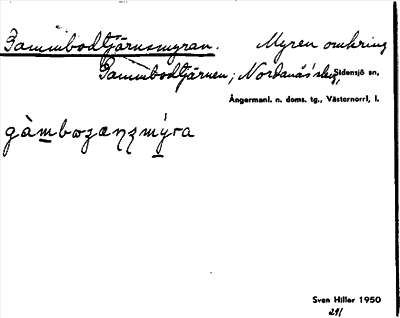 Gammbodtjärnsmyran. Myren omkring
Gammbodtjärnen; Nordanås' skog, Sidensjö sn,
Ångermanl. n. doms. tg., Västernorrl, l.
Sven Hiller 1950